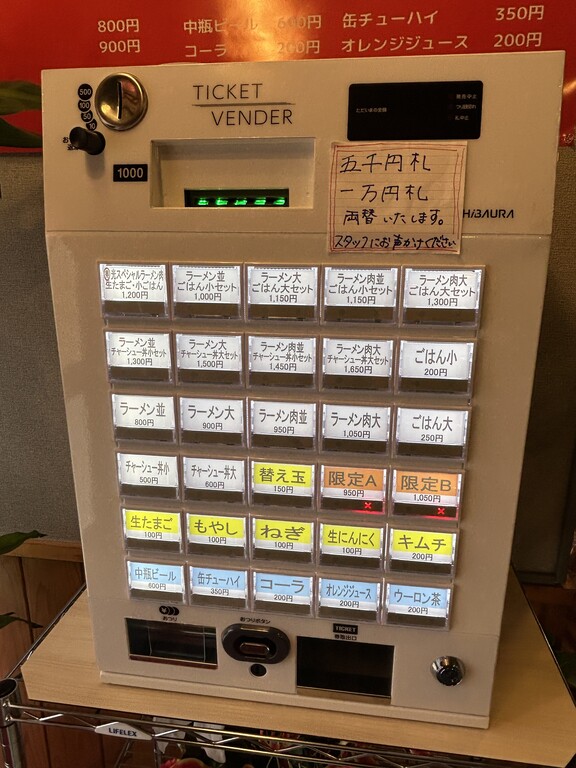 800円 中瓶ビール 600円 缶チューハイ 350円
900円 コーラ 200円 オレンジジュース 200円
TICKET
VENDER
500
100
50
10
1000
五千円札
一万円札
両替いたします。
スタッフにお声かけください
SHiBAURA
光スペシャルラーメン肉
生たまご・小ごはん
1,200円
ラーメン並
ごはん小セット
1,000円
ラーメン大
ごはん大セット
1,150円
ラーメン肉並
ごはん小セット
1,150円
ラーメン肉大
ごはん大セット
1,300円
ラーメン並
チャーシュー丼小セット
1,300円
ラーメン大
チャーシュー丼大セット
1,500円
ラーメン肉並
チャーシュー丼小セット
1,450円
ラーメン肉大
チャーシュー丼大セット
1,650円
ごはん小
200円
ラーメン並
800円
ラーメン大
900円
ラーメン肉並
950円
ラーメン肉大
1,050円
ごはん大
250円
チャーシュー丼小
500円
チャーシュー丼大
600円
替え玉
150円
限定A
950円
限定B
1,050円
生たまご
100円
もやし
100円
ねぎ
100円
生にんにく
100円
キムチ
200円
中瓶ビール
600円
缶チューハイ
350円
コーラ
200円
オレンジジュース
200円
ウーロン茶
200円
おつり
おつりボタン
TICKET
食券出口
LIFELEX